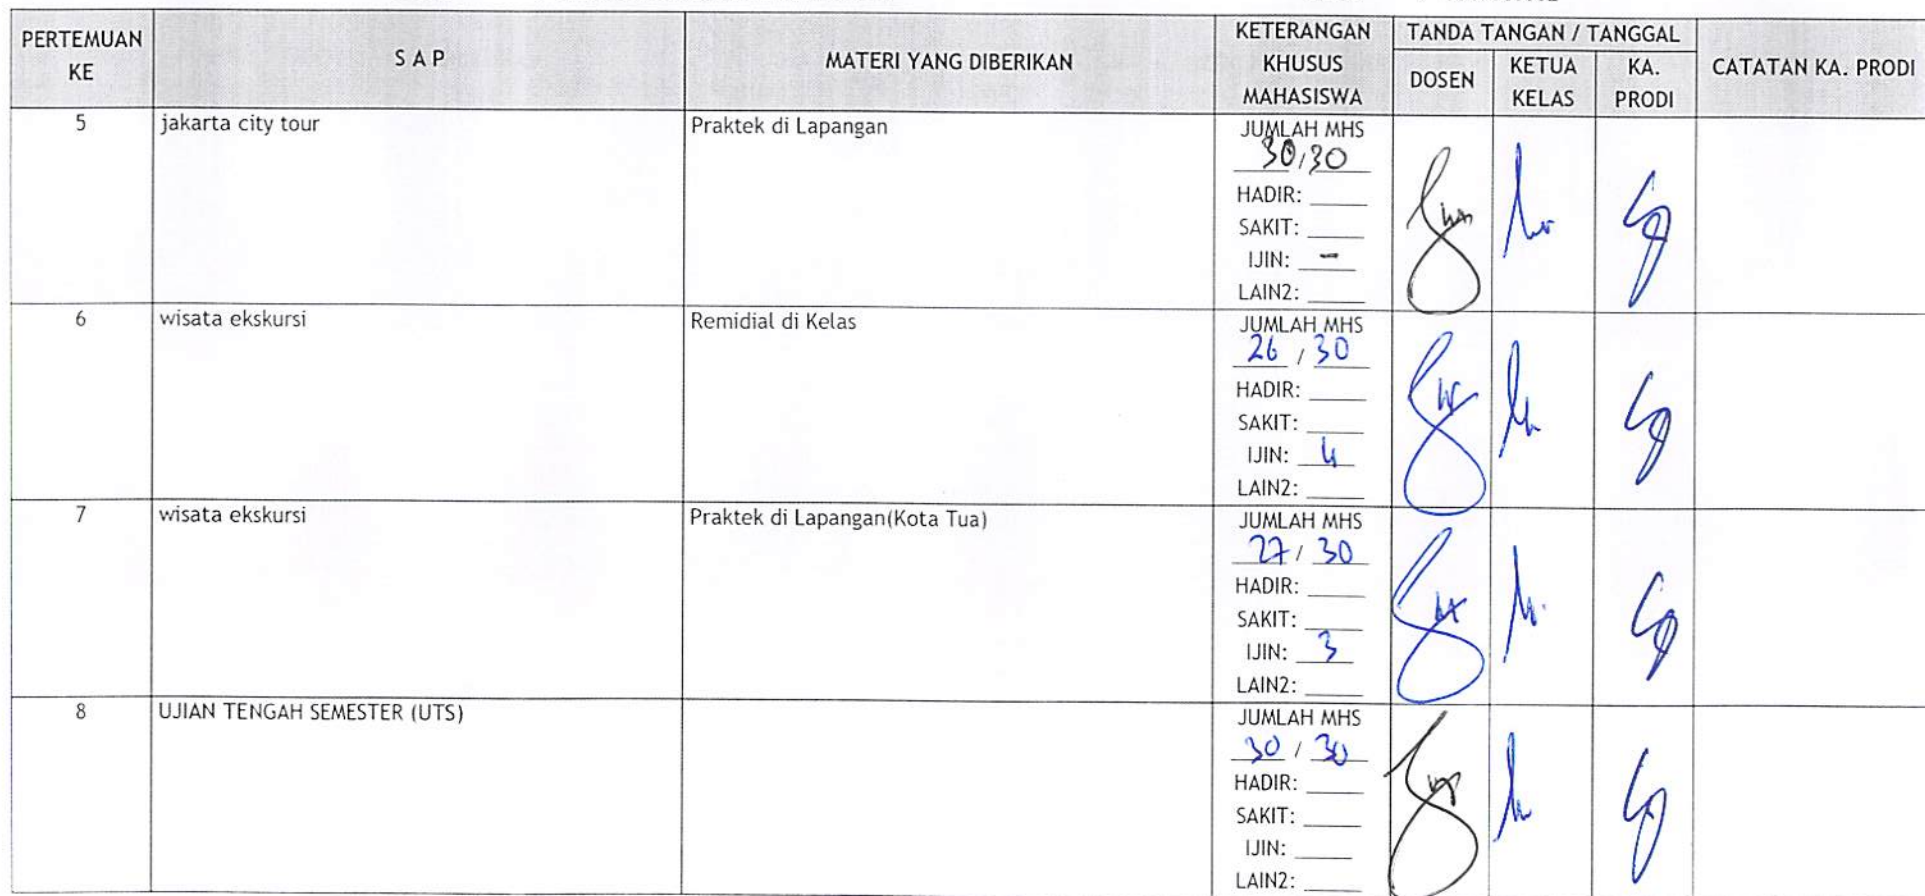 PERTEMUAN KE
S A P
MATERI YANG DIBERIKAN
KETERANGAN KHUSUS MAHASISWA
TANDA TANGAN / TANGGAL
DOSEN
KETUA KELAS
KA. PRODI
CATATAN KA. PRODI
5
jakarta city tour
Praktek di Lapangan
JUMLAH MHS
30/30
HADIR:
SAKIT:
IJIN: -
LAIN2:
6
wisata ekskursi
Remidial di Kelas
JUMLAH MHS
26 / 30
HADIR:
SAKIT:
IJIN: 4
LAIN2:
7
wisata ekskursi
Praktek di Lapangan(Kota Tua)
JUMLAH MHS
27 / 30
HADIR:
SAKIT:
IJIN: 3
LAIN2:
8
UJIAN TENGAH SEMESTER (UTS)
JUMLAH MHS
30 / 30
HADIR:
SAKIT:
IJIN:
LAIN2: